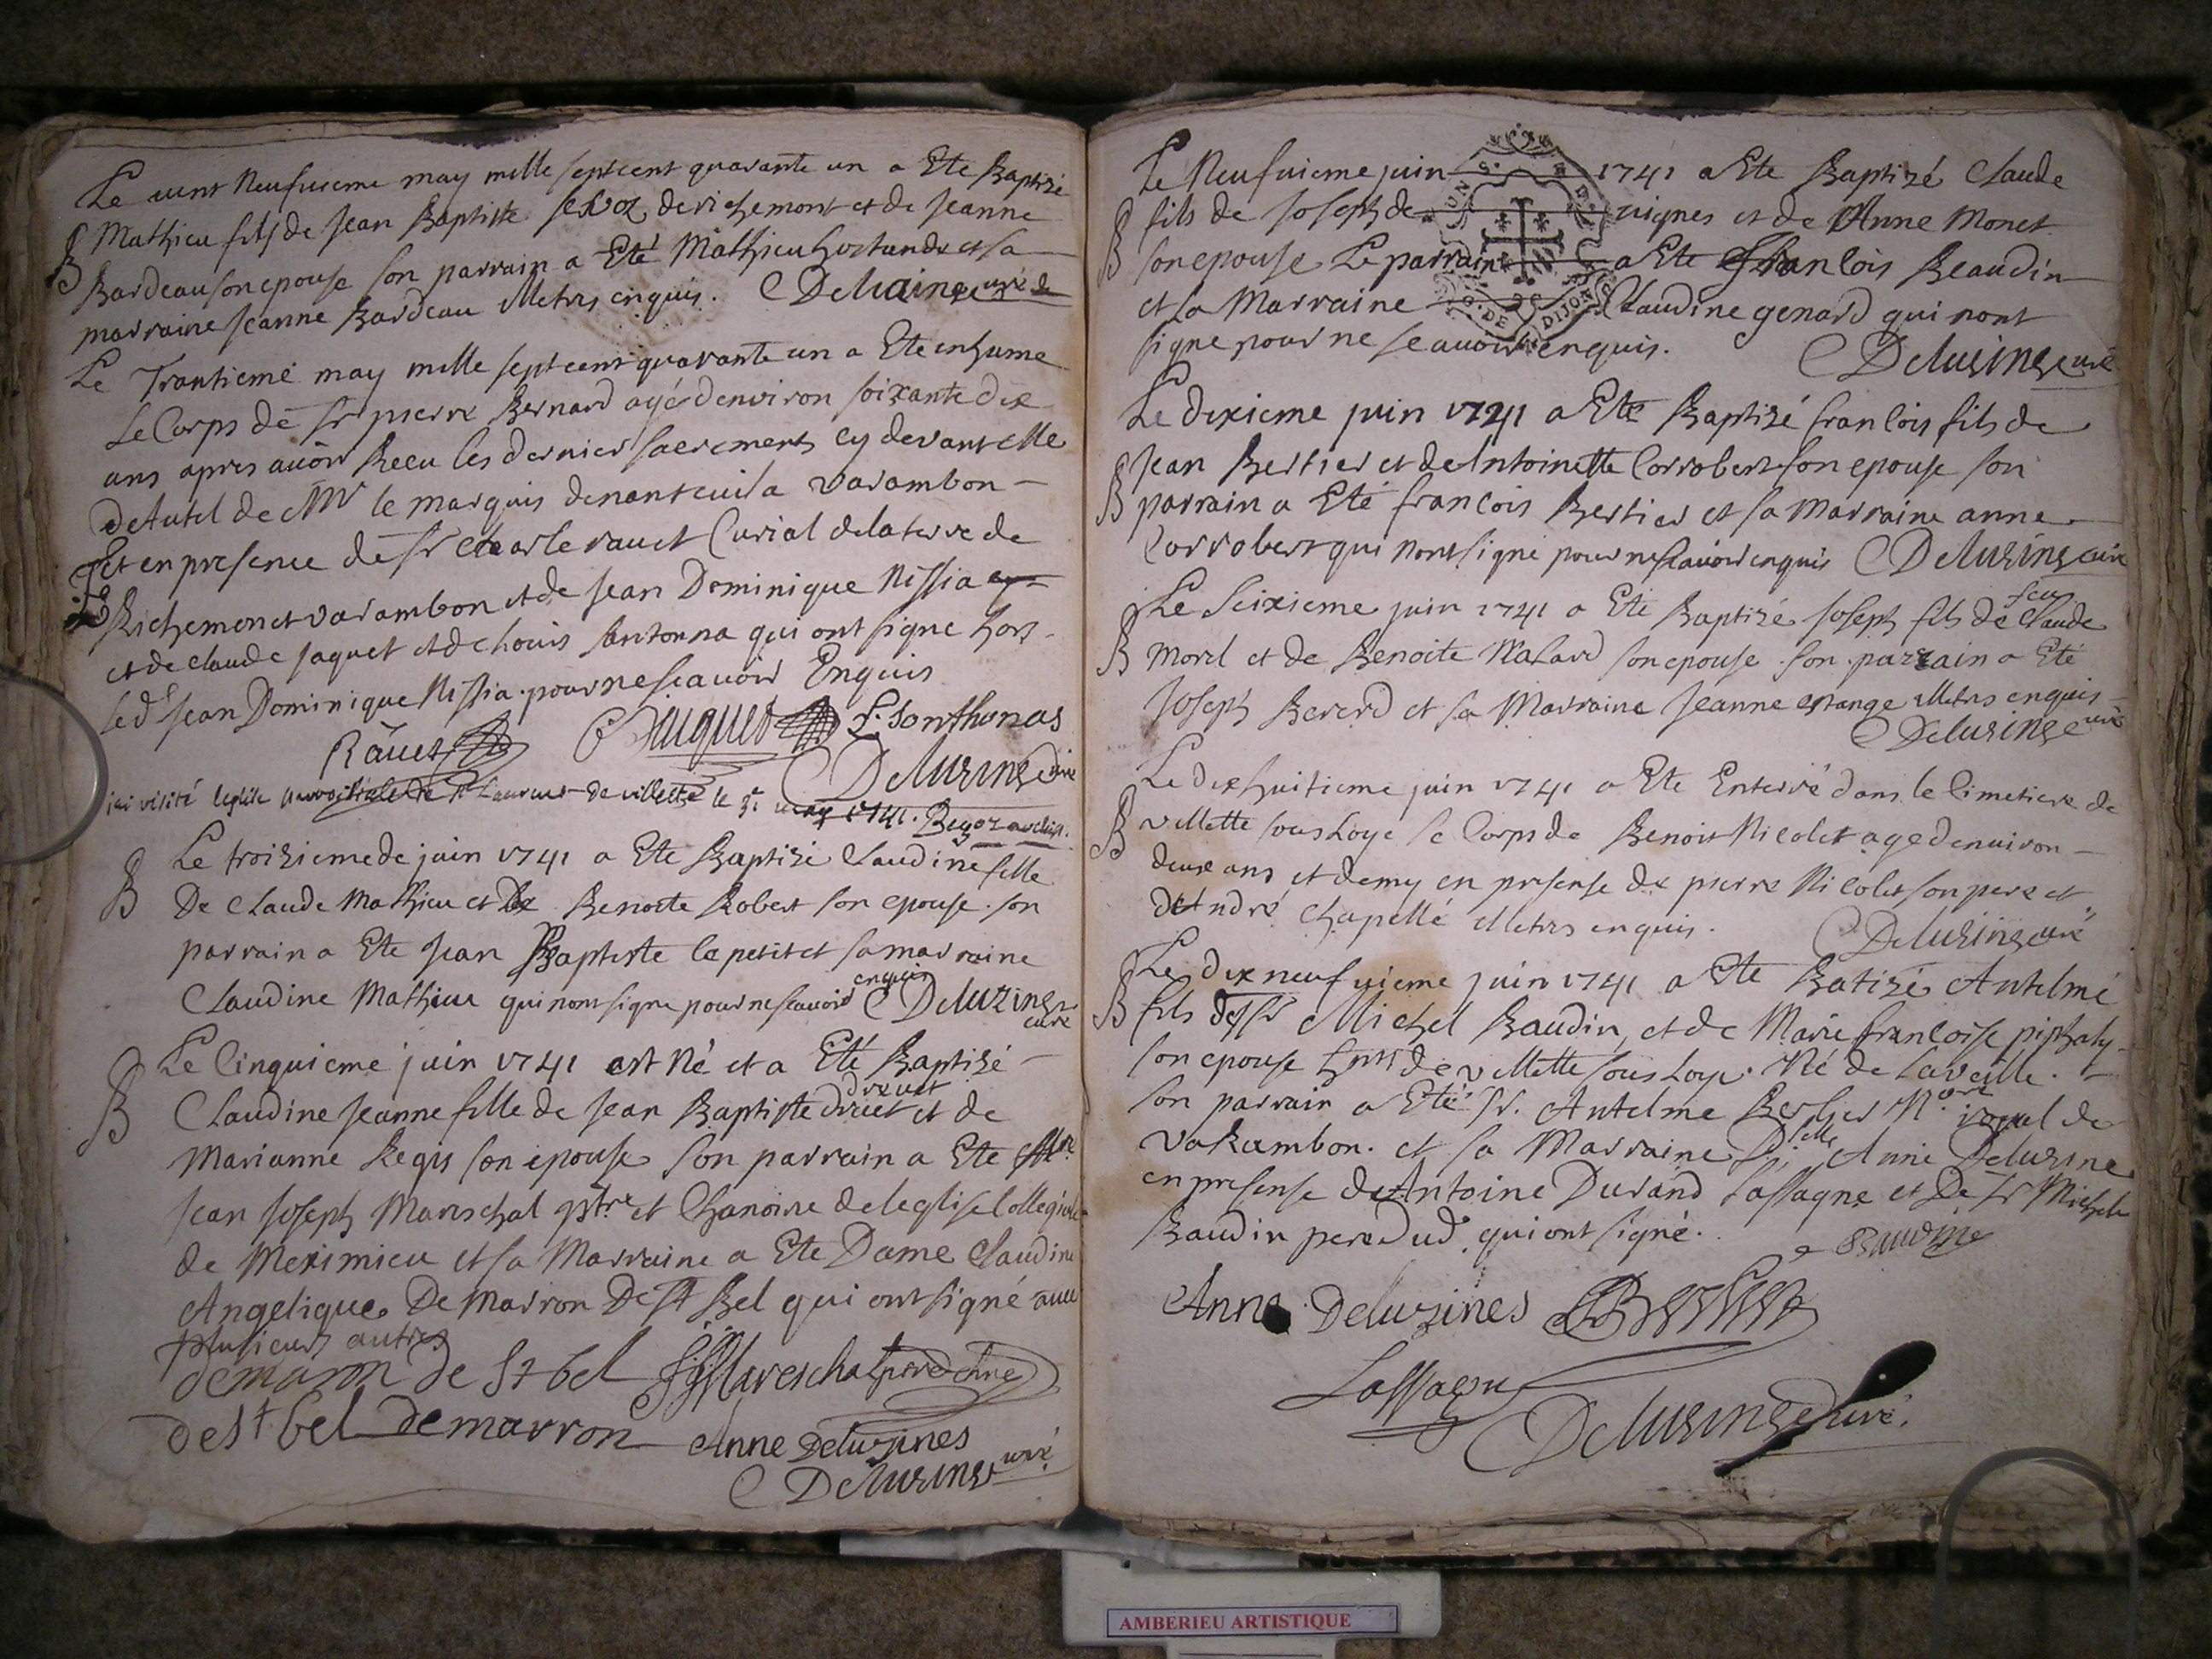 Le vint Neufvieme may mille septcent quarante un a Ete Baptizé
B Mathieu fils de Jean Baptiste de richemont et de Jeanne
Bardeau son epouse son parrain a Eté Mathieu et sa
marraine Jeanne Bardeau illetrés enquis. Deluzinge curé
Le Trantiemé may mille septcent quarante un a Ete inhume
Le Corps de Sr pierre Bernard agé denviron soixante dix
ans apres avoir Receu les dernier sacrements cy devant
de Mr le marquis denanteuil a varambon
Et en presence de Sr Charle ravet Curial dela terre de
Richemon et varambon et de Jean Dominique Nissia
et de Claude jaquet et de Louis qui ont signe hors
led Jean Dominique Nissia pour ne scavoir Enquis
Râvet Jaquet L. Sonthonas
Deluzinge curé
ici visité leglise parroissiale de St Laurent de villette le 31 may 1741.
B Le troizieme de juin 1741 a Ete Baptizé Claudine fille
De Claude Mathieu et De Benoite Robert son epouse. son
parrain a Ete Jean Baptiste le petit et sa marraine
Claudine Mathieu qui nont signe pour ne scavoir enquis Deluzinge
curé
B Le Cinquieme juin 1741 est Né et a Eté Baptizé
Claudine Jeanne fille de Jean Baptiste druet drevet et de
Marianne Regis son epouse son parrain a Ete Mre
Jean Joseph Marischal ptre et Chanoine de leglise Collegiale
de Meximieu et sa Marraine a Ete Dame Claudine
Angelique De Marron De St Bel qui ont signé avec
plusieurs autres
demaron de St bel Mareschal
de St bel demarron Anne Deluzines
Deluzinge curé
Le Neufvieme juin 1741 a Ete Baptizé Claude
B fils de Joseph de vignes et de Anne Monet
son epouse Le parrain a Ete François Beaudin
et la Marraine Claudine genard qui nont
signe pour ne scavoir enquis.
Deluzinge curé
Le dixieme juin 1741 a Eté Baptizé François fils de
B Jean Bertier et de Antoinette Corrobert son epouse son
parrain a Eté François Bertier et sa Marraine anne
Corrobert qui nont signe pour ne scavoir enquis Deluzinge curé
B Le Seixieme juin 1741 a Eté Baptizé Joseph fils de feu Claude
Morel et de Benoite son epouse son parrain a Eté
Joseph Bererd et sa Marraine Jeanne estange illetrés enquis
Deluzinge curé
B Le dixhuitieme juin 1741 a Ete Enterré dans le Cimetiere de
villette sous Loye le Corps de Benoit Nicolet age denviron
deux ans et demy en presense de pierre Nicolet son pere et
dAndré Chapellé illetrés enquis.
Deluzinge curé
B Le dixneufvieme juin 1741 a Ete Batizé Antelmé
fils de Sr Michel Baudin, et de Marie françoise
son epouse de villette sous Loye. Né de la veille.
son parrain a Eté Sr. Antelme Berlier Nore royal de
vakambon. et sa Marraine Anne Deluzine
en presense de Antoine Durand Lassagne et De Sr Michel
Baudin pere dud. qui ont signé.
Baudin
Anne Deluzines Berlier
Lassagne
Deluzinge curé.
DE DIJON
AMBERIEU ARTISTIQUE